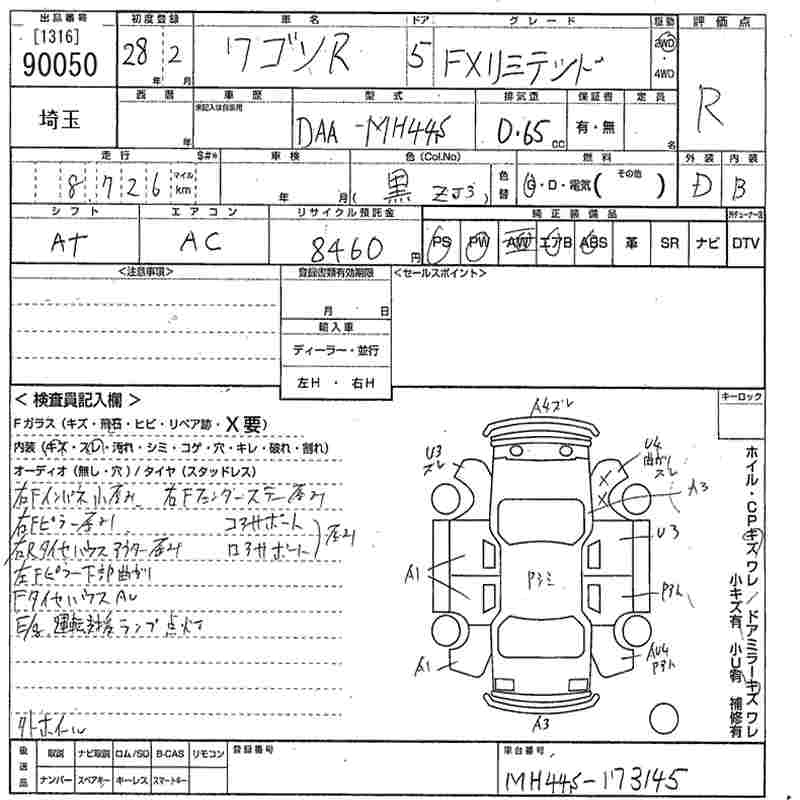 出品番号 初度登録 車名 ドア グレード 駆動 評価点
[1316]
90050 28年 2月 ワゴンR 5 FXリミテッド 2WD・4WD R
埼玉
西暦 車歴 型式 排気量 保証書 定員
未記入は自家用
年 DAA-MH44S 0.65cc 有・無 名
走行 S#* 車検 色(Col.No) 燃料 外装 内装
8726 マイル km 年 月 黒 ZJ3 色替 G・D・電気( その他 ) D B
シフト エアコン リサイクル預託金 純正装備品
AT AC 8460円 PS PW AW エアB ABS 革 SR ナビ DTV
<注意事項> 登録書類有効期限 <セールスポイント>
月 日
輸入車
ディーラー・並行
左H ・ 右H
<検査員記入欄> キーロック
Fガラス(キズ・飛石・ヒビ・リペア跡・X要)
内装(キズ・スレ・汚れ・シミ・コゲ・穴・キレ・破れ・割れ)
オーディオ(無し・穴)/タイヤ(スタッドレス)
右Fインパネ小歪み 右Fフェンダーステー歪み
右Fピラー歪み コアサポート
右Rタイヤハウスアウター歪み ロアサポート 歪み
左Fピラー下部曲がり
FタイヤハウスAU
運転支援ランプ点灯
外ホイール
A4ズレ
U3
ズレ
U4
曲がり
ズレ
A3
U3
A1
Pヨミ
Pヨレ
A1
AU4
Pヨレ
A3
ホイル・CPキズワレ/ドアミラーキズワレ
小キズ有 小U有 補修有
後送品 取説 ナビ取説 ロム/SD B-CAS リモコン 登録番号 車台番号
ナンバー スペアキー キーレス スマートキー MH44S-173145